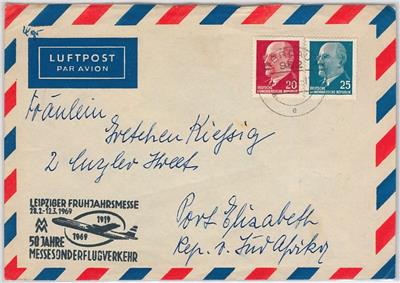 LUFTPOST
PAR AVION
20
DEUTSCHE
DEMOKRATISCHE REPUBLIK
25
DEUTSCHE
DEMOKRATISCHE REPUBLIK
Fräulein
Gretchen Kiessig
2
Port Elizabeth
Rep. v. Süd Afrika
LEIPZIGER FRÜHJAHRSMESSE
28.2.-12.3.1969
1919
1969
50 JAHRE
MESSESONDERFLUGVERKEHR